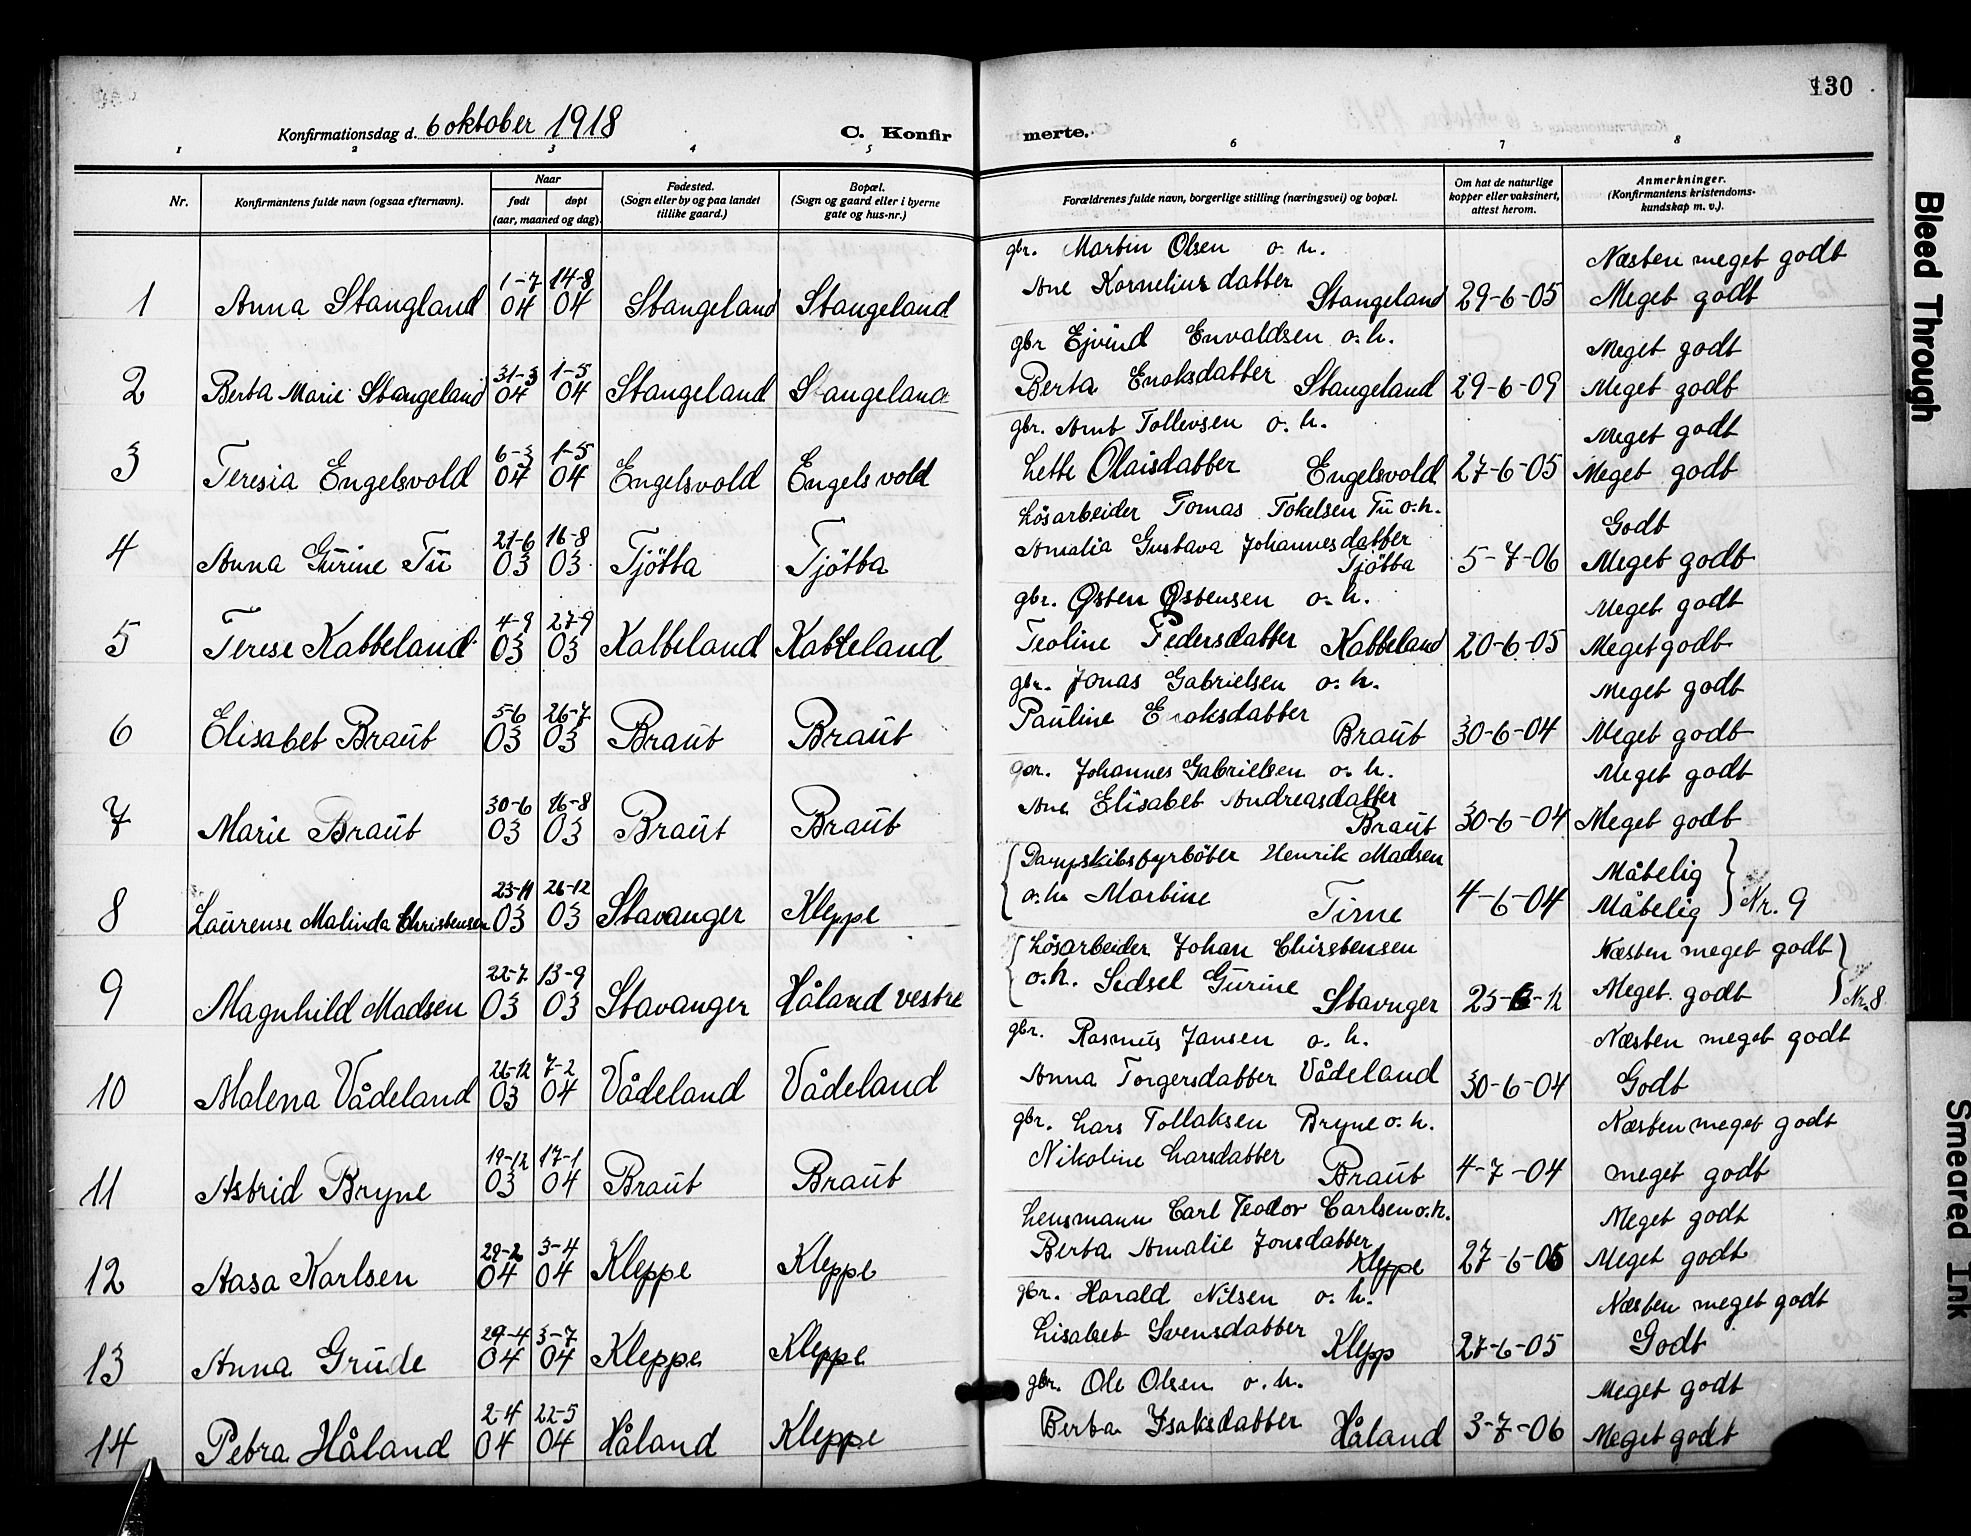 130
Konfirmationsdag d. 6 oktober 1918
C. Konfirmerte.
1 2 3 4 5 6 7 8
Nr.
Konfirmantens fulde navn (ogsaa efternavn).
Naar
født døpt
(aar, maaned og dag).
Fødested.
(Sogn eller by og paa landet
tillike gaard.)
Bopæl.
(Sogn og gaard eller i byerne
gate og hus-nr.)
Forældrenes fulde navn, borgerlige stilling (næringsvei) og bopæl.
Om hat de naturlige
kopper eller vaksinert,
attest herom.
Anmerkninger.
(Konfirmantens kristendoms-
kundskap m. v.).
gbr. Martin Olsen o. h. Næsten meget godt
1-7 14-8 Ane Kornelius datter
1 Anna Stangland 04 04 Stangeland Stangeland Stangeland 29-6-05 Meget godt
gbr Ejvind Envaldsen o. h. Meget godt
31-3 1-5
2 Berta Marie Stangeland 04 04 Stangeland Stangeland Berta Enoksdatter Stangeland 29-6-09 Meget godt
gbr. Arnt Tollevsen o. h. Meget godt
6-3 1-5
3 Teresia Engelsvold 04 04 Engelsvold Engelsvold Lette Olaisdatter Engelsvold 27-6-05 Meget godt
Løsarbeider Tomas Tokelsen Tu o. h. Godt
21-6 16-8 Amalia Gustava Johannesdatter
4 Anna Gurine Tu 03 03 Tjøtta Tjøtta Tjøtta 5-7-06 Meget godt
gbr. Østen Østensen o. h. Meget godt
4-9 27-9
5 Terese Kabbeland 03 03 Kabbeland Kabbeland Teoline Pedersdatter Kabbeland 20-6-05 Meget godt
gbr. Jonas Gabrielsen o. h. Meget godt
5-6 26-7 Pauline Enoksdatter
6 Elisabet Braut 03 03 Braut Braut Braut 30-6-04 Meget godt
gbr. Johannes Gabrielsen o. h. Meget godt
30-6 16-8 Ane Elisabet Andreasdatter
7 Marie Braut 03 03 Braut Braut Braut 30-6-04 Meget godt
Dampskibsfyrbøter Henrik Madsen Måtelig
23-11 26-12 o. h. Martine
8 Laurense Malinda Christensen 03 03 Stavanger Kleppe Tirne 4-6-04 Måtelig Nr. 9
Løsarbeider Johan Chirstensen Næsten meget godt
22-7 13-9 o. h. Sidsel Gurine
9 Magnhild Madsen 03 03 Stavanger Håland vestre Stavnger Meget godt Nr. 8
gbr. Rasmus Jansen o. h. Næsten meget godt
26-12 7-2
10 Malena Vådeland 03 04 Vådeland Vådeland Anna Torgersdatter Vådeland 30-6-04 Godt
gbr. Lars Tollaksen Bryne o. h. Næsten meget godt
19-12 17-1 Nikoline Larsdatter
11 Astrid Bryne 03 04 Braut Braut Braut 4-7-04 meget godt
Lensmann Carl Teodor Carlsen o. h. Meget godt
29-2 3-4 Berta Amalie Jonsdatter
12 Aasa Karlsen 04 04 Kleppe Kleppe Kleppe 27-6-05 Meget godt
gbr. Harald Nilsen o. h. Næsten meget godt
29-4 3-7 Lisabet Svensdatter
13 Anna Grude 04 04 Kleppe Kleppe Klepp 27-6-05 Godt
gbr. Ole Olsen o. h. Meget godt
2-4 22-5
14 Petra Håland 04 04 Håland Kleppe Berta Isaksdatter Håland 3-7-06 Meget godt
Bleed Through
Smeared Ink